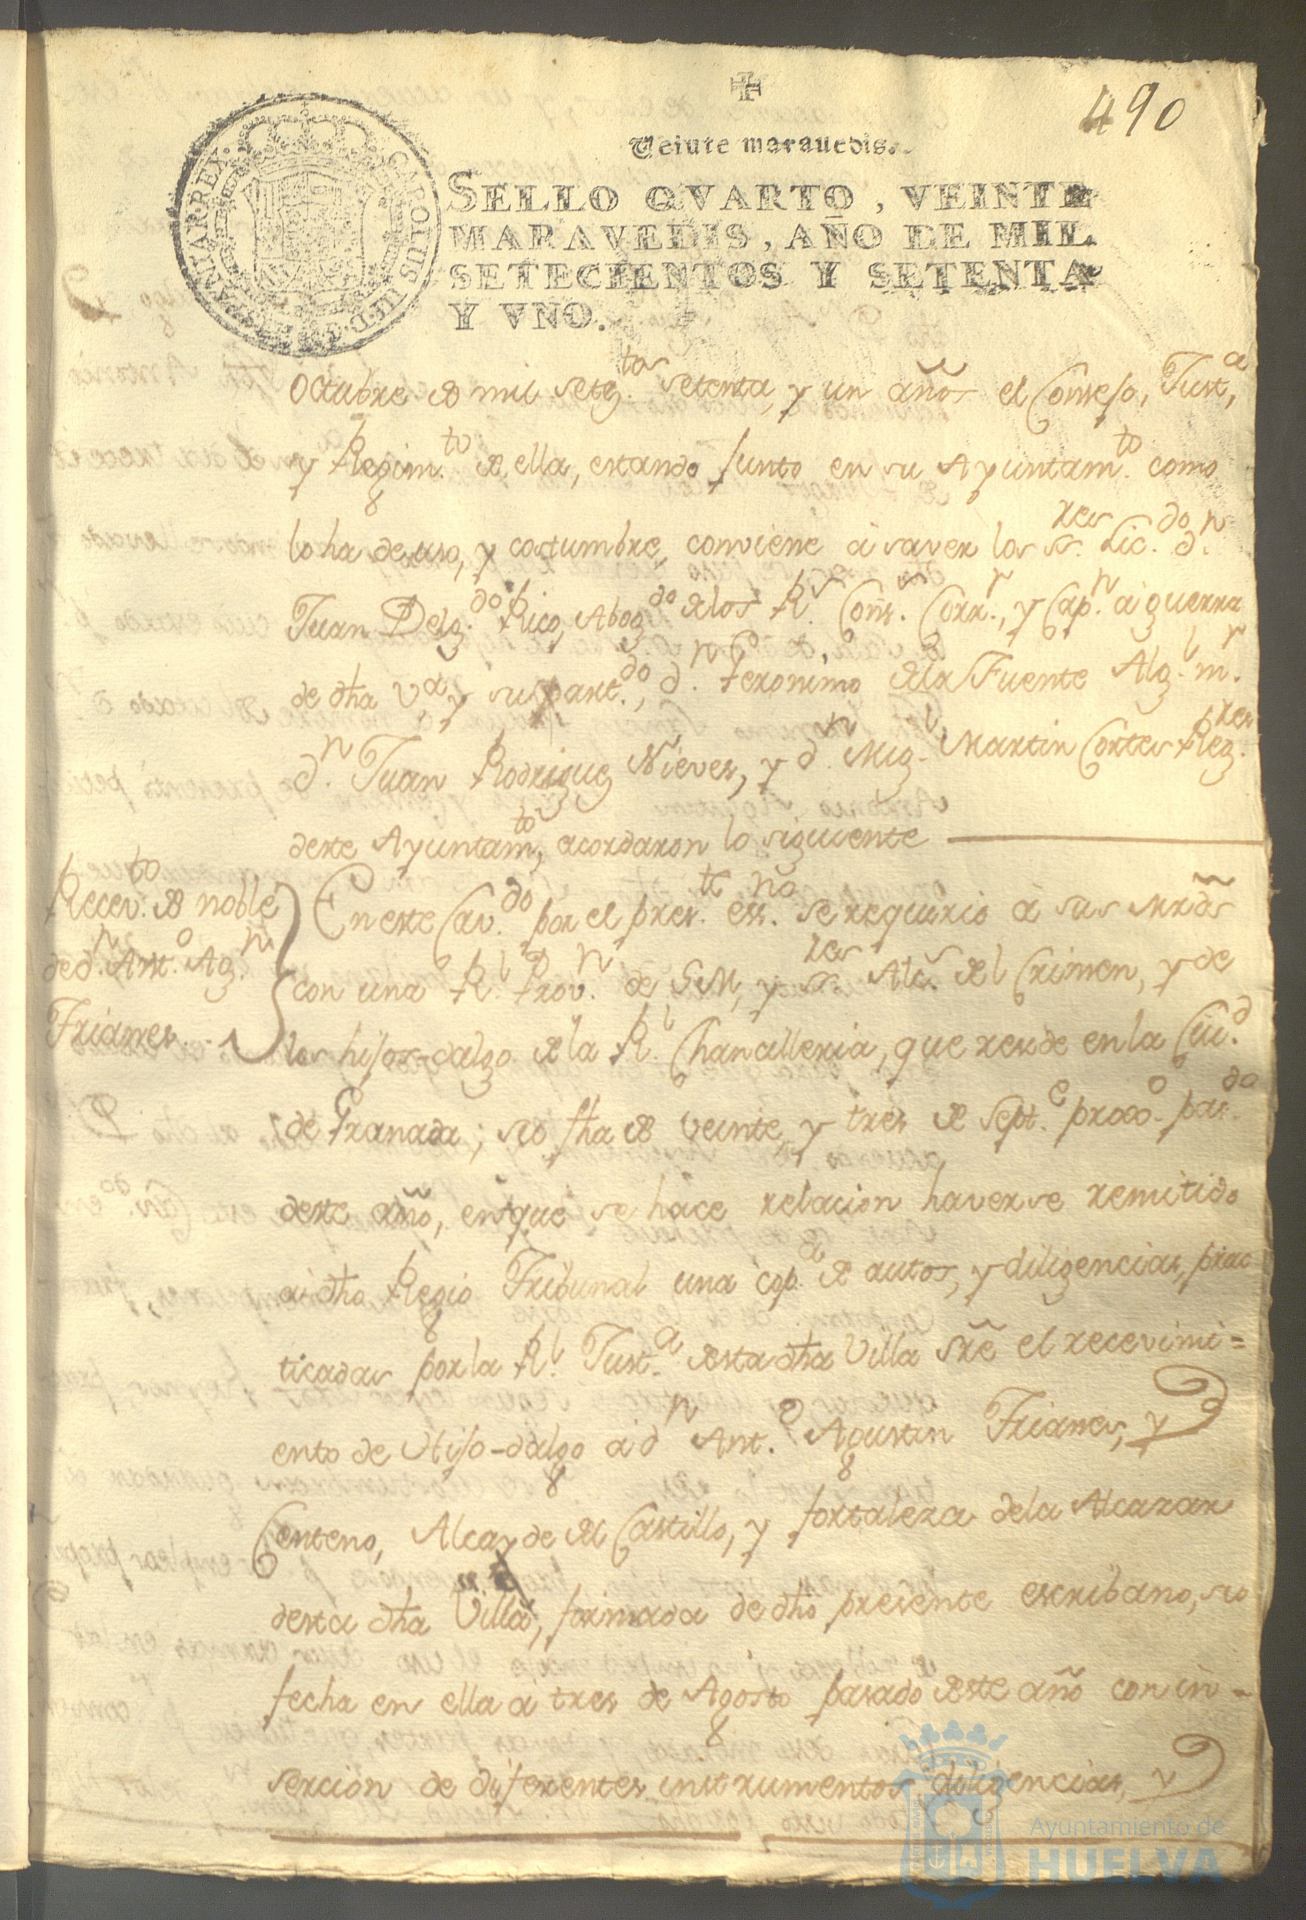 490
Veinte maravedis.
SELLO QVARTO, VEINTE
MARAVEDIS, AÑO DE MIL
SETECIENTOS Y SETENTA
Y VNO.
CAROLUS III D. G. HISPANIAR REX
Octubre de mil setez.tos setenta, y un años el Consejo, Just.a,
y Regim.to de ella, estando junto en su Ayuntam.to como
lo ha de uso, y costumbre, conviene à saver los ss.res Lic.do d.n
Juan Delg.do Rico, Abog.do de los R.s Cons.os Corr.r, y Cap.n à guerra
de dha V.a y su part.do, d.n Geronimo de la Fuente Alg.l m.r
d.n Juan Rodriguez Nieves, y d.n Mig.l Martin Cortes Reg.res
deste Ayuntam.to, acordaron lo siguiente
Recev.to de noble
de d.n Ant.o Ag.n
Frianes.
En este Cav.do por el pres.te ess.no se requirio à sus mrds
con una R.l Prov.n de S M, y ss.res Alc.s del Crimen, y de
los hijos-dalgo de la R.l Chancilleria, que reside en la Ciu.d
de Granada; su fha de veinte, y tres de Sept.e proxo.o pas.do
deste año, en que se hace relacion haverse remitido
à dho Regio Tribunal una cop.a de autos, y diligencias, prac
ticadas por la R.l Just.a desta dha Villa sre el recevimi=
ento de Hijo-dalgo à d.n Ant.o Agustin Frianes, y
Centeno, Alcayde del Castillo, y fortaleza dela Alcazar
desta dha Villa, formada de dho presente escribano, su
fecha en ella à tres de Agosto pasado deste año con in-
sercion de diferentes instrumentos diligencias, y
Ayuntamiento de
HUELVA